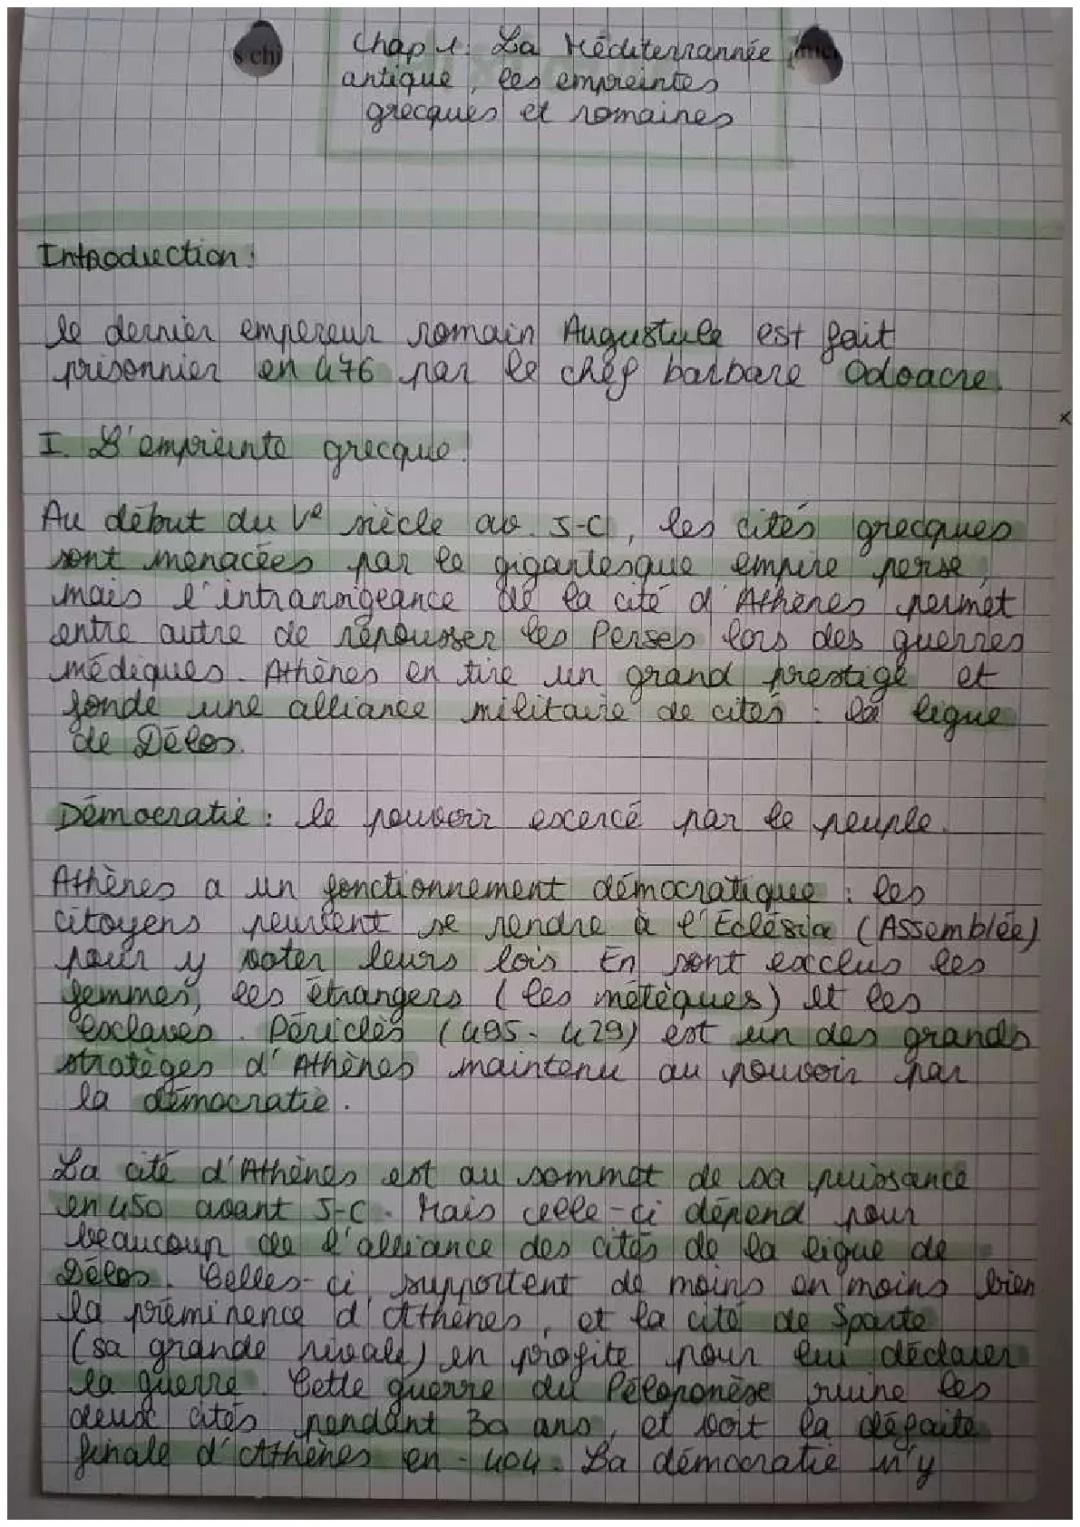 s chi
Chap 1: La Méditerrannée
antique, les empreintes
grecques et romaines
Introduction:
le dernier empereur romain Augustule est fait
prisonnier en 476 par le chef barbare Odoacre.
I. L'empreinte grecque:
Au début du Ve siècle av. J-C, les cités grecques
sont menacées par le gigantesque empire perse,
mais l'intransigeance de la cité d'Athènes permet
entre autre de repousser les Perses lors des guerres
médiques. Athènes en tire un grand prestige et
fonde une alliance militaire de cités : la ligue
de Délos.
Démocratie : le pouvoir excercé par le peuple.
Athènes a un fonctionnement démocratique : les
citoyens peuvent se rendre à l'Eclésia (Assemblée)
pour y voter leurs lois En sont exclus les
femmes, les étrangers (les métèques) et les
esclaves. Périclès (495-429) est un des grands
stratèges d'Athènes maintenu au pouvoir par
la démocratie.
La cité d'Athènes est au sommet de sa puissance
en 450 avant J-C. Mais celle-ci dépend pour
beaucoup de l'alliance des cités de la ligue de
Délos. Celles-ci supportent de moins en moins bien
la préminence d'Athènes, et la cité de Sparte
(sa grande rivale) en profite pour lui déclarer
la guerre. Cette guerre du Péloponèse ruine les
deux cités pendant 30 ans, et voit la défaite
finale d'Athènes en -404. La démocratie n'y